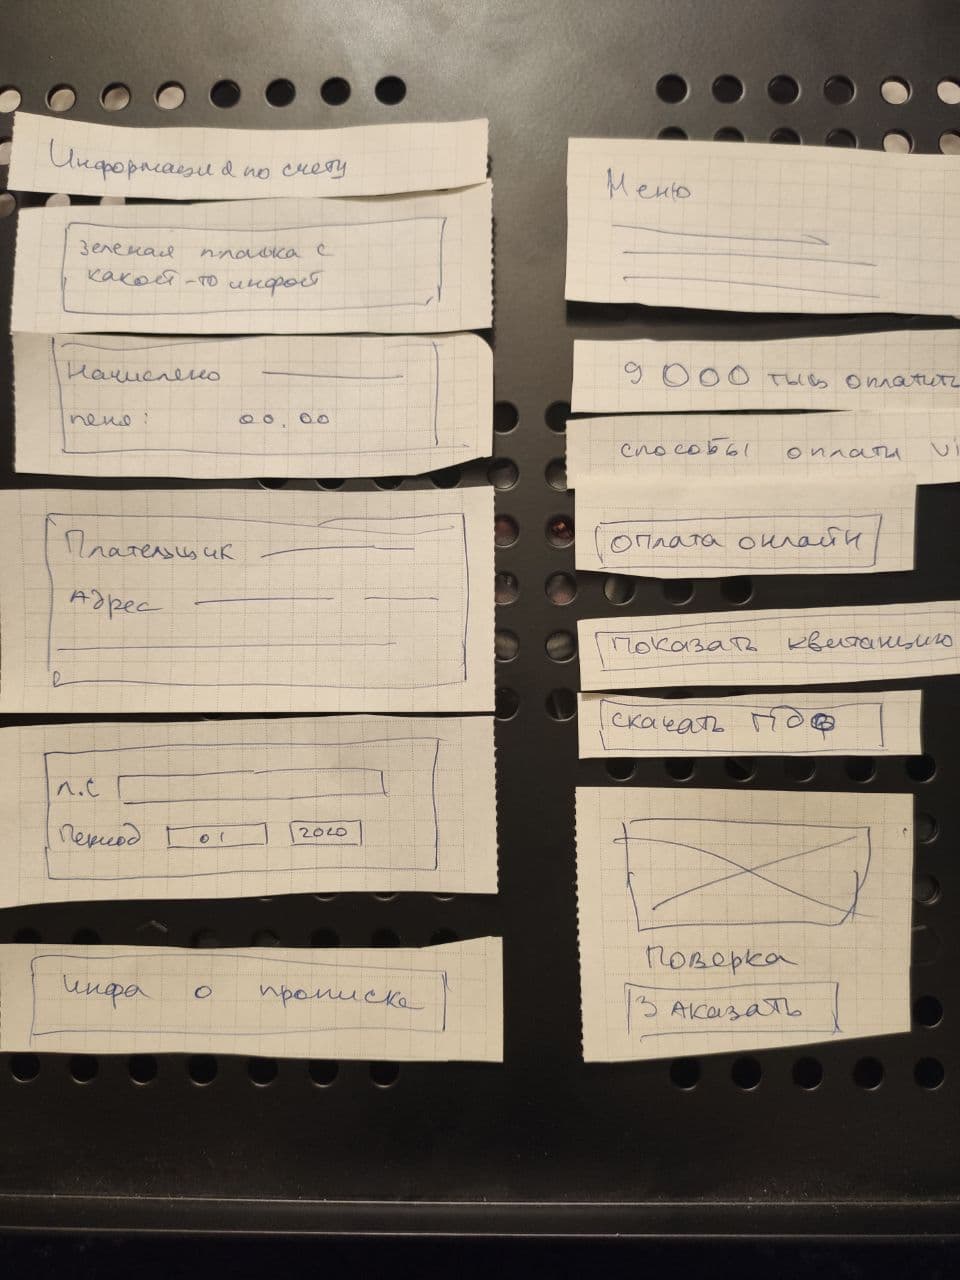 Информация по счету
зеленая плашка с
какой-то инфой
Начислено
пено: 00.00
Плательщик
Адрес
Л.С
Период 01 2020
инфа о прописке
Меню
9 000 тыщ оплатить
способы оплаты vi
оплата онлайн
Показать квитанцию
скачать ПДФ
Поверка
Заказать